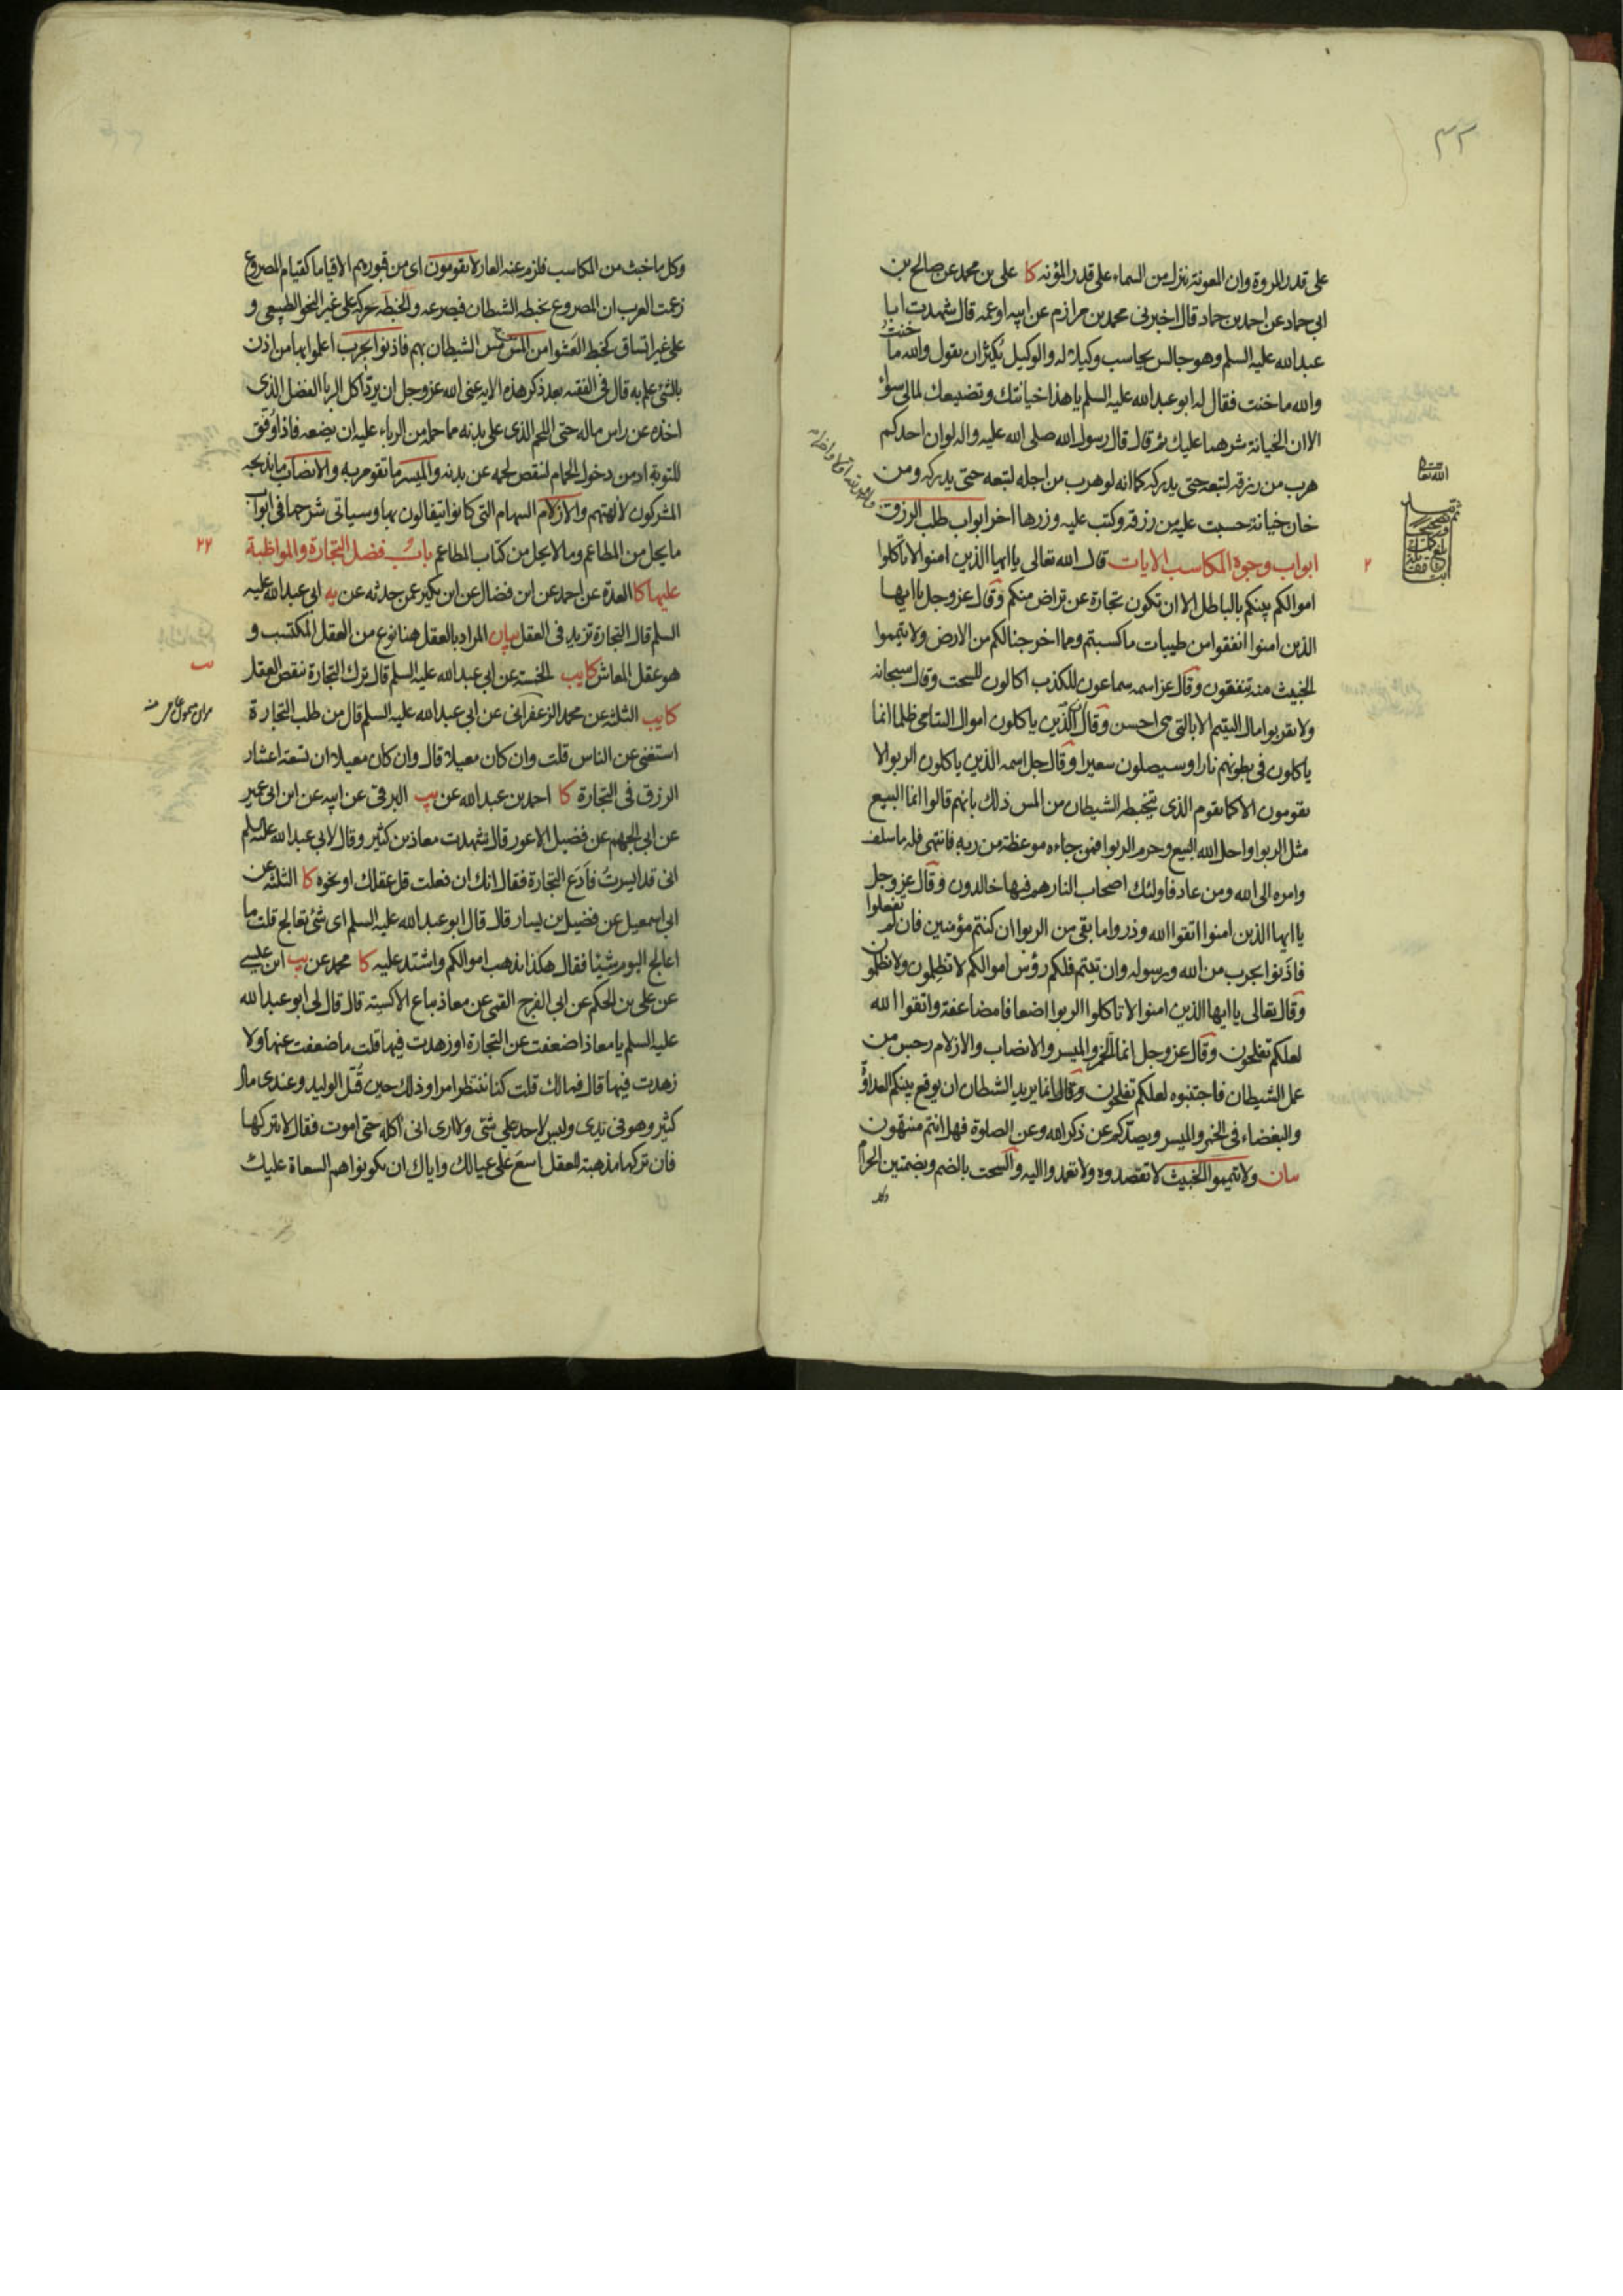 ٣٢
على قدر المروة وان المعونة تنزل من السماء على قدر المؤنه كا على بن محمد عن صالح بن
ابى حماد عن احمد بن حماد قال اخبرنى محمد بن مرازم عن ابيه اوعمه قال شهدت ابا
عبدالله عليه السلم وهو جالس يحاسب وكيلا له والوكيل يكثر ان يقول والله ما خنت
والله ما خنت فقال له ابو عبدالله عليه السلم يا هذا خيانتك وتضييعك لمالى سواء
الا ان الخيانة شرهما عليك ثم قال قال رسول الله صلى الله عليه واله لو ان احدكم
هرب من رزقه لتبعه حتى يدركه كما انه لو هرب من اجله لتبعه حتى يدركه ومن
خان خيانة حسبت عليه من رزقه وكتب عليه وزرها اخر ابواب طلب الرزق
ابواب وجوه المكاسب الايات قال الله تعالى يا ايها الذين امنوا لا تاكلوا
اموالكم بينكم بالباطل الا ان تكون تجارة عن تراض منكم وقال عز وجل يا ايها
الذين امنوا انفقوا من طيبات ما كسبتم ومما اخرجنا لكم من الارض ولا تيمموا
الخبيث منه تنفقون وقال عز اسمه سماعون للكذب اكالون للسحت وقال سبحانه
ولا تقربوا مال اليتيم الا بالتى هى احسن وقال الذين ياكلون اموال اليتامى ظلما انما
ياكلون فى بطونهم نارا وسيصلون سعيرا وقال جل اسمه الذين ياكلون الربوا لا
يقومون الا كما يقوم الذى يتخبطه الشيطان من المس ذلك بانهم قالوا انما البيع
مثل الربوا واحل الله البيع وحرم الربوا فمن جاءه موعظة من ربه فانتهى فله ما سلف
وامره الى الله ومن عاد فاولئك اصحاب النار هم فيها خالدون وقال عز وجل
يا ايها الذين امنوا اتقوا الله وذروا ما بقى من الربوا ان كنتم مؤمنين فان لم تفعلوا
فاذنوا بحرب من الله ورسوله وان تبتم فلكم رؤس اموالكم لا تظلمون ولا تظلمون
وقال تعالى يا ايها الذين امنوا لا تاكلوا الربوا اضعافا مضاعفة واتقوا الله
لعلكم تفلحون وقال عز وجل انما الخمر والميسر والانصاب والازلام رجس من
عمل الشيطان فاجتنبوه لعلكم تفلحون وقال انما يريد الشيطان ان يوقع بينكم العداوة
والبغضاء فى الخمر والميسر ويصدكم عن ذكر الله وعن الصلوة فهل انتم منتهون
بيان ولا تيمموا الخبيث لا تقصدوه ولا تعمدوا اليه والسحت بالضم وبضمتين الحرام
وكل
٢
وكل ما خبث من المكاسب فلزم عنه العار لا يقومون اى من قبورهم الا قياما كقيام المصروع
زعمت العرب ان المصروع يخبطه الشيطان فيصرعه والخبطة حركة على غير النحو الطبيعى و
على غير اتساق كخبط العشوا من المس مس الشيطان بهم فاذنوا بحرب اعلموا بها من اذن
بالشئ علم به قال فى الفقيه بعد ذكر هذه الاية عنى الله عز وجل ان يرد اكل الربا الفضل الذى
اخذه عن راس ماله حتى اللحم الذى على بدنه مما حمله من الرباء عليه ان يضعه فاذا وفق
للتوبة ادمن دخول الحمام لينقص لحمه عن بدنه والميسر ما تقومر به والانصاب ما يذبحه
المشركون لالهتهم والازلام السهام التى كانوا يتفالون بها وسياتى شرحها فى ابواب
ما يحل من المطاعم وما لا يحل من كتاب المطاعم باب فضل التجارة والمواظبة
٢٢
عليها كا العدة عن احمد عن ابن فضال عن ابن بكير عمن حدثه عن يه ابى عبدالله عليه
السلم قال التجارة تزيد فى العقل بيان المراد بالعقل هنا نوع من العقل المكتسب و
هو عقل المعاش كا يب الخمسة عن ابى عبدالله عليه السلم قال ترك التجارة ينقص العقل
كا يب الثلثة عن محمد الزعفرانى عن ابى عبدالله عليه السلم قال من طلب التجارة
استغنى عن الناس قلت وان كان معيلا قال وان كان معيلا ان تسعة اعشار
الرزق فى التجارة كا احمد بن عبدالله عن يب البرقى عن ابيه عن ابن ابى عمير
عن ابى الجهم عن فضيل الاعور قال شهدت معاذ بن كثير وقال لابى عبدالله عليه السلم
انى قد ايسرت فادع التجارة فقال انك ان فعلت قل عقلك او نحوه كا الثلثة عن
ابى اسمعيل عن فضيل بن يسار قال قال ابو عبدالله عليه السلم اى شئ تعالج قلت ما
اعالج اليوم شيئا فقال هكذا تذهب اموالكم واشتد عليه كا محمد عن يب ابن عيسى
عن على بن الحكم عن ابى الفرج القمى عن معاذ بياع الاكسية قال قال لى ابو عبدالله
عليه السلم يا معاذ اضعفت عن التجارة او زهدت فيها قلت ما ضعفت عنها ولا
زهدت فيها قال فما لك قلت كنا ننتظر امرا وذلك حين قتل الوليد وعندى مال
كثير وهو فى يدى وليس لاحد على شئ ولا ارى انى اكله حتى اموت فقال لا تتركها
فان تركها مذهبة للعقل اسع على عيالك واياك ان يكونوا هم السعاة عليك